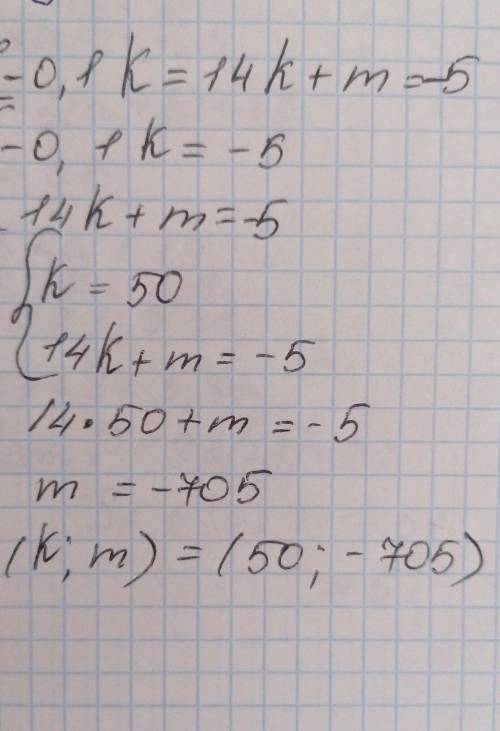 -0,1k = 14k + m = -5
-0,1k = -5
14k + m = -5
{ k = 50
14k + m = -5
14 · 50 + m = -5
m = -705
(k; m) = (50; -705)